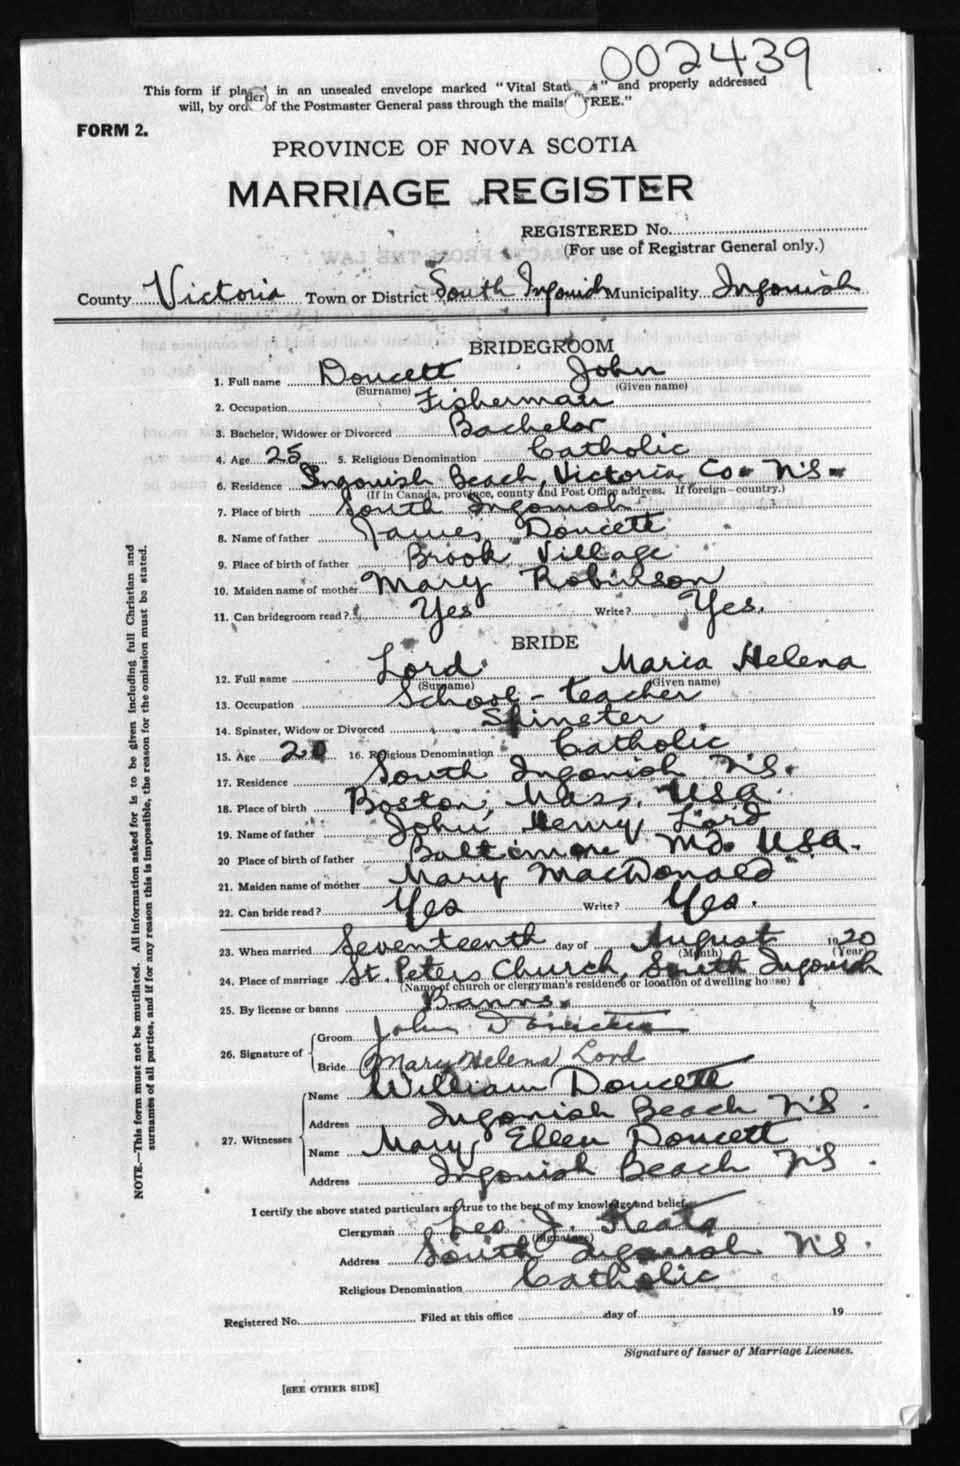 002439
This form if placed in an unsealed envelope marked "Vital Statistics" and properly addressed
will, by order of the Postmaster General pass through the mails "FREE."
FORM 2.
PROVINCE OF NOVA SCOTIA
MARRIAGE REGISTER
REGISTERED No.
(For use of Registrar General only.)
County Victoria Town or District South Ingonish Municipality Ingonish
BRIDEGROOM
1. Full name Doucett John
(Surname) (Given name)
2. Occupation Fisherman
3. Bachelor, Widower or Divorced Bachelor
4. Age 25 5. Religious Denomination Catholic
6. Residence Ingonish Beach, Victoria Co. N.S.
(If in Canada, province, county and Post Office address. If foreign-country.)
7. Place of birth South Ingonish
8. Name of father James Doucett
9. Place of birth of father Brook Village
10. Maiden name of mother Mary Robinson
11. Can bridegroom read? Yes Write? Yes.
BRIDE
12. Full name Lord Maria Helena
(Surname) (Given name)
13. Occupation School-teacher
14. Spinster, Widow or Divorced Spinster
15. Age 16. Religious Denomination Catholic
17. Residence South Ingonish N.S.
18. Place of birth Boston, Mass. USA.
19. Name of father John Henry Lord
20 Place of birth of father Baltimore Md. USA.
21. Maiden name of mother Mary MacDonald
22. Can bride read? Yes Write? Yes.
23. When married Seventeenth day of August 1920
(Month) (Year)
24. Place of marriage St. Peters Church, South Ingonish
(Name of church or clergyman's residence or location of dwelling house)
25. By license or banns Banns.
26. Signature of Groom John Doucett
Bride Mary Helena Lord
27. Witnesses Name William Doucett
Address Ingonish Beach N.S.
Name Mary Ellen Doucett
Address Ingonish Beach N.S.
I certify the above stated particulars are true to the best of my knowledge and belief.
Clergyman Leo J. Keats
(Signature)
Address South Ingonish N.S.
Religious Denomination Catholic
Registered No. Filed at this office day of 19
Signature of Issuer of Marriage Licenses.
[SEE OTHER SIDE]
NOTE.—This form must not be mutilated. All information asked for is to be given including full Christian and
surnames of all parties, and if for any reason this is impossible, the reason for the omission must be stated.